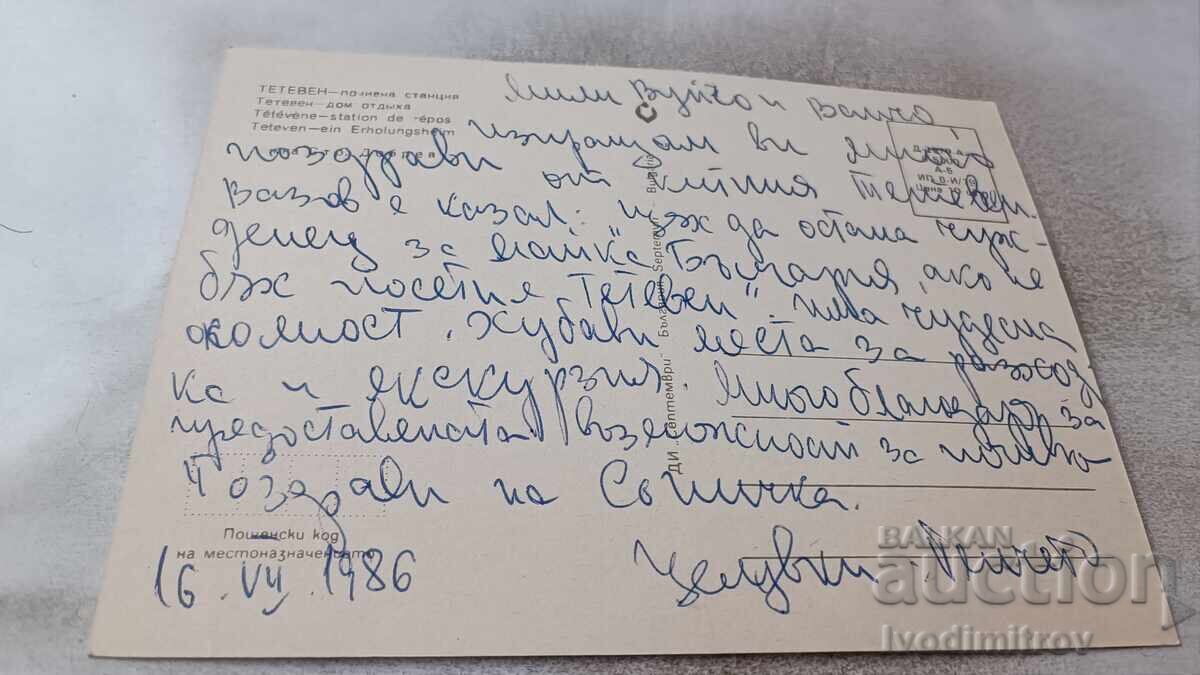 ТЕТЕВЕН — почивна станция
Тетевен — дом отдыха
Tétévène — station de repos
Teteven — ein Erholungsheim
Мили Вуйчо и Ванчо
изпращам ви много
поздрави от китния Тетевен.
Вазов е казал: "Щях да остана чуж-
денец за майка България, ако не
бях посетил Тетевен". Има чудесна
околност. Хубави места за разход-
ка и екскурзия. Много благодаря за
предоставената възможност за почивка
Поздрави на Соничка.
Целувки -
16.VII.1986
Пощенски код
на местоназначението
ДИ „Септември" България Septemvri Bulgaria
BALKAN
auction
Ivodimitrov